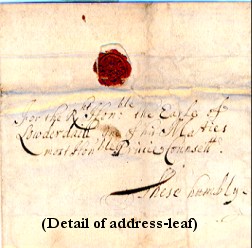 For the Rt Honble the Earle of
Lowderdaill one of his Maties
most Honble Privie Counsell
These humbly
(Detail of address-leaf)